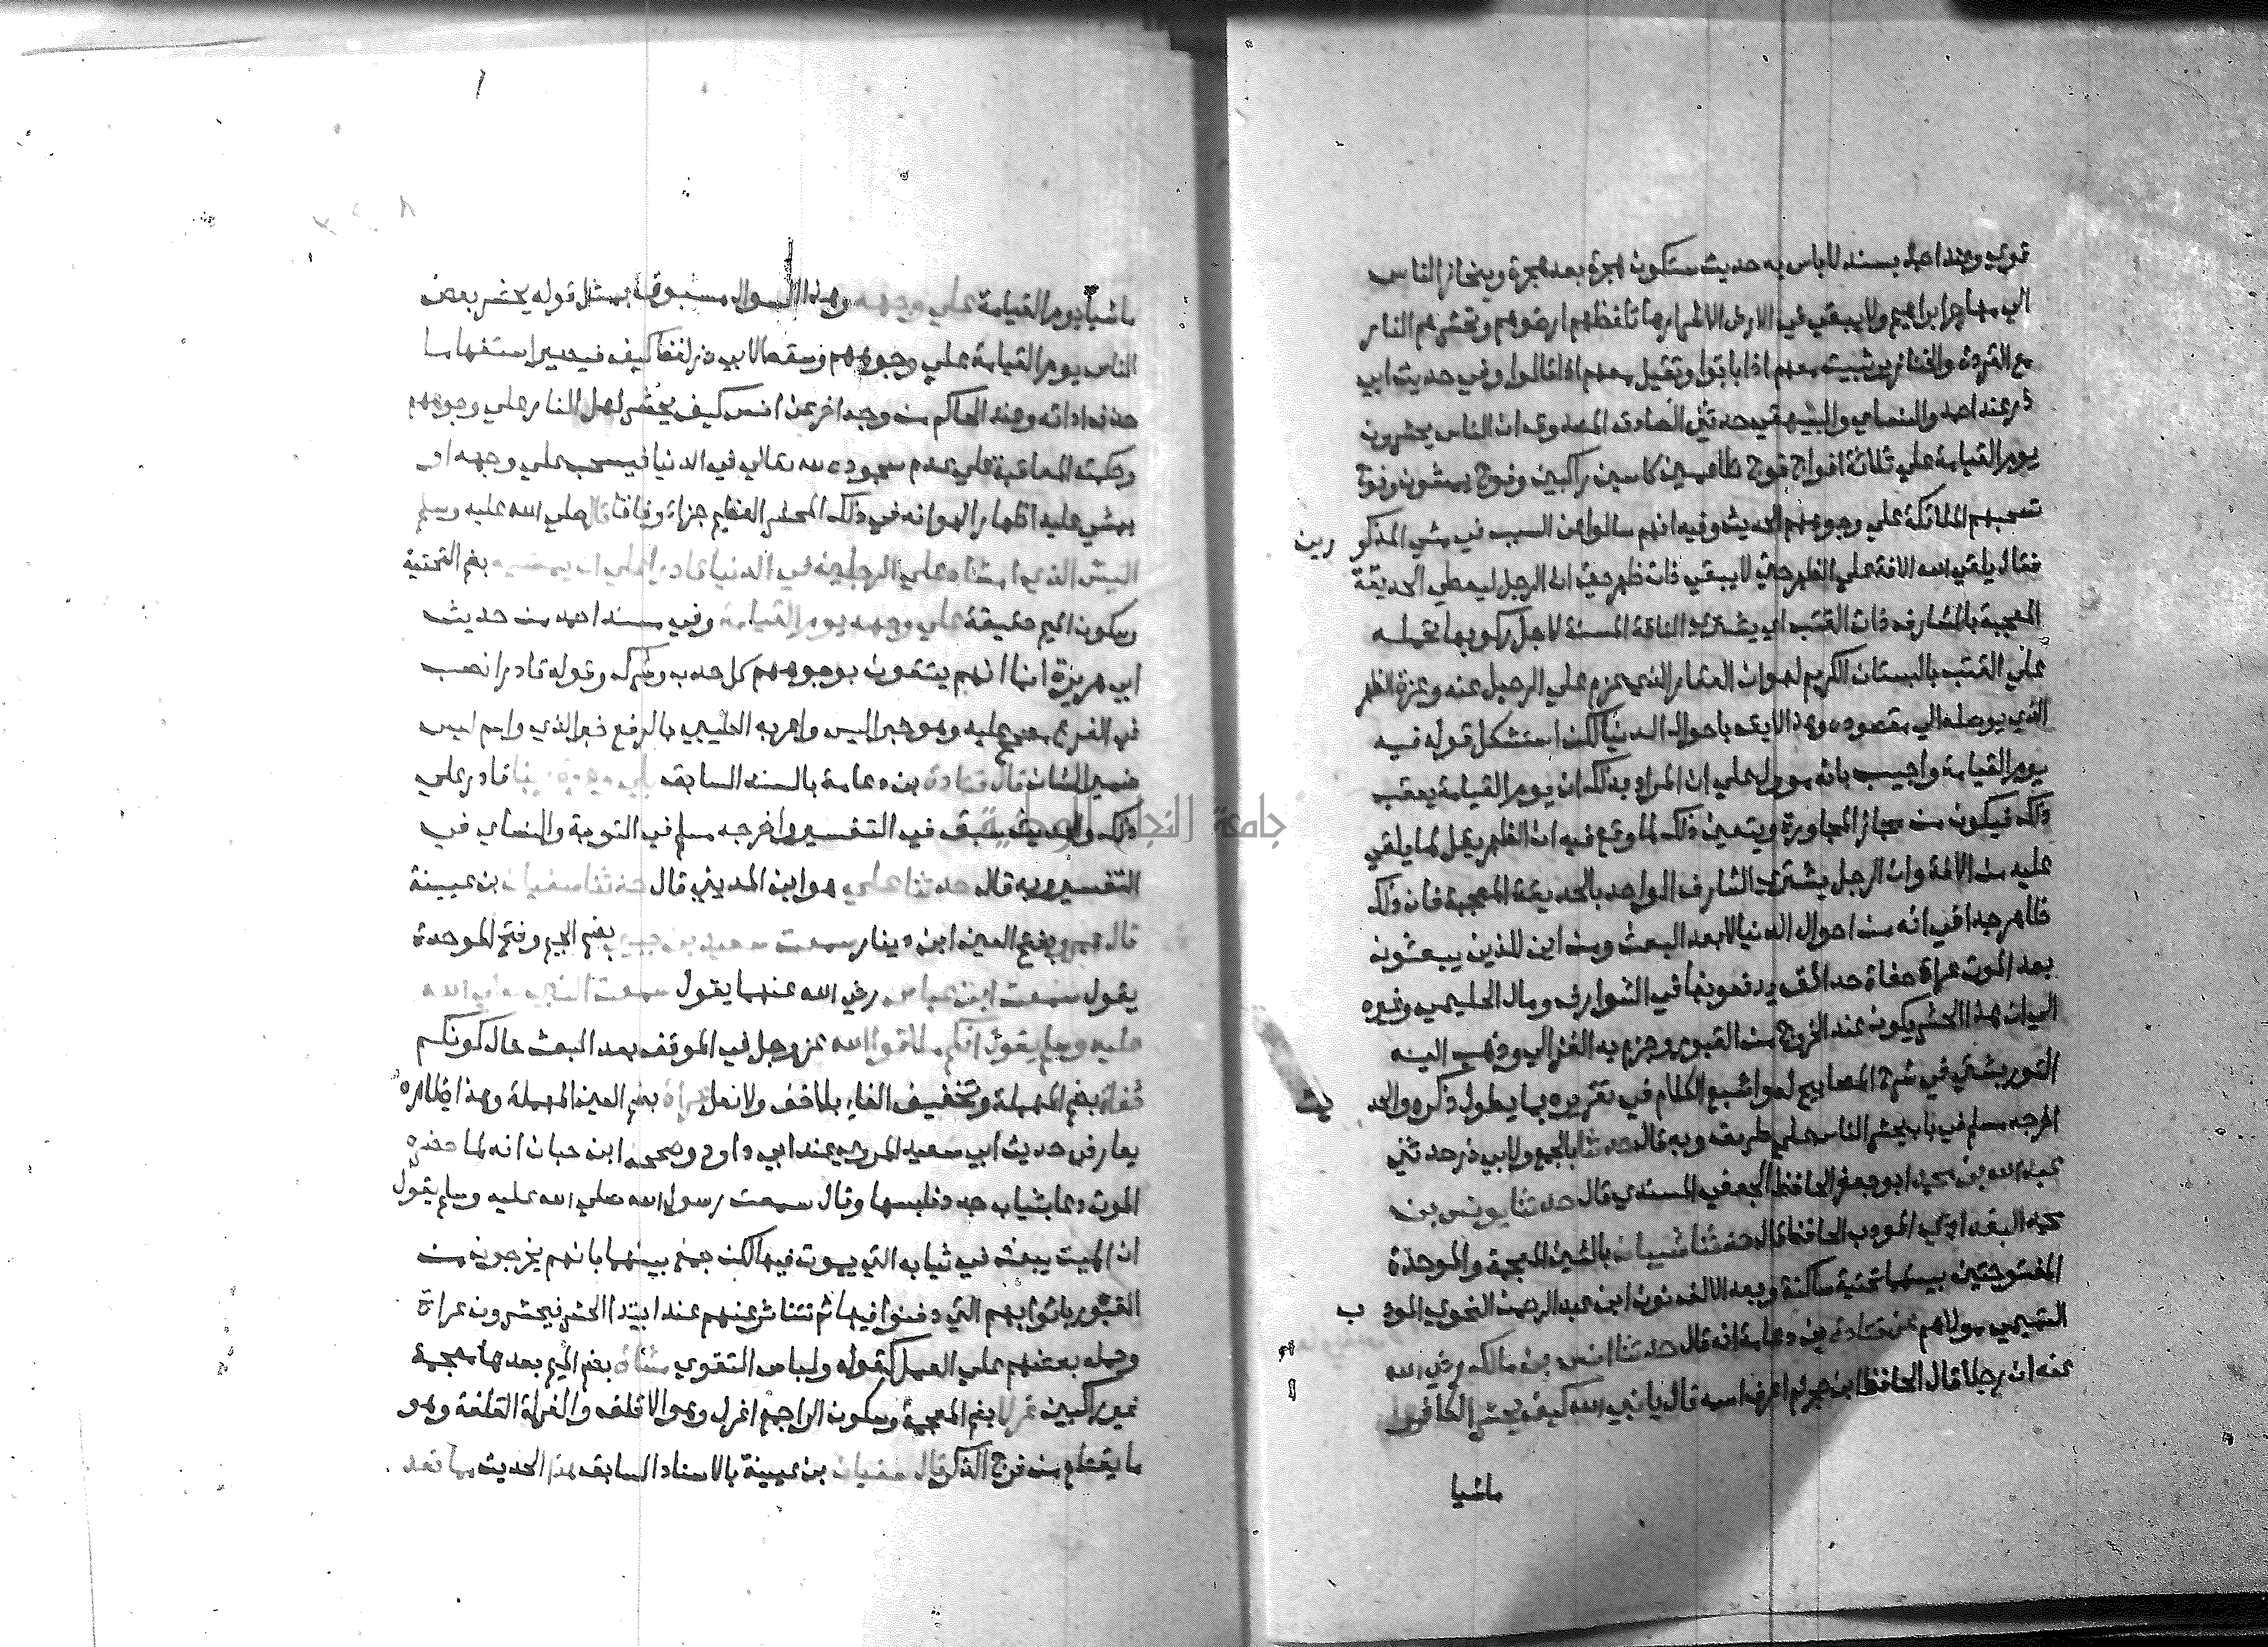 قوي وعند احمد بسند لاباس به حديث ستكون هجرة بعد هجرة وينحاز الناس
الي مهاجر ابراهيم ولا يبقي في الارض الا شرارها تلفظهم ارضوهم وتحشرهم النار
مع القردة والخنازير تبيت معهم اذا باتوا وتقيل معهم اذا قالوا وفي حديث ابي
ذر عند احمد والنساي والبيهقي حدثني الصادق المصدوق ان الناس يحشرون
يوم القيامة علي ثلاثة افواج فوج طاعمين كاسين راكبين وفوج يمشون وفوج
تسحبهم الملائكة علي وجوههم الحديث وفيه انهم سالوا عن السبب في مشي المذكورين
فقال يلقي الله الافة علي الظهر حتي لا يبقي ذات ظهر حتي ان الرجل ليعطي الحديقة
المعجبة بالشارف ذات القتب اي يشتري الناقة المسنة لاجل ركوبها تحمله
علي القتب بالبستان الكريم لهوان العقار الذي عزم علي الرحيل عنه وعزة الظهر
الذي يوصله الي مقصوده وهذا لايق باحوال الدنيا لكن استشكل قوله فيه
يوم القيامة واجيب بانه مول علي ان المراد بذلك ان يوم القيامة يعقب
ذلك فيكون من مجاز المجاورة ويتعين ذلك لما وقع فيه ان الظهر يقل لما يلقي
عليه من الافة وان الرجل يشتري الشارف الواحد بالحديقة المعجبة فان ذلك
ظاهر جدا في انه من احوال الدنيا لا بعد البعث ومن اين للذين يبعثون
بعد الموت عراة حفاة حدائق يدفعونها في الشوارف ومال الحليمي وغيره
الي ان هذا الحشر يكون عند الخروج من القبور وجزم به الغزالي وذهب اليه
التوربشتي في شرح المصابيح له واشبع الكلام في تقريره بما يطول ذكره والحديث
اخرجه مسلم في باب يحشر الناس علي طريقه وبه قال حدثنا بالجمع ولابي ذر حدثني
عبد الله بن محمد ابو جعفر الحافظ الجعفي المسندي قال حدثنا يونس بن
محمد البغدادي المودب الحافظ قال حدثنا شيبان بالشين المعجمة والموحدة
المفتوحتين بينهما تحتية ساكنة وبعد الالف نون ابن عبد الرحمن النحوي المودب
التميمي مولاهم عن قتادة بن دعامة انه قال حدثنا انس بن مالك رضي الله
عنه ان رجلا قال الحافظ ابن حجر لم اعرف اسمه قال يا نبي الله كيف يحشر الكافر
ماشيا
ماشيا يوم القيامة علي وجهه وهذا السوال مسبوق بمثل قوله يحشر بعض
الناس يوم القيامة علي وجوههم وسقط لابي ذر لفظ كيف فيصير استفهاما
حذف اداته وعند الحاكم من وجه اخر عن انس كيف يحشر اهل النار علي وجوههم
وحكمته المعاقبة علي عدم سجوده لله تعالي في الدنيا فيسحب علي وجهه او
يمشي عليه اظهارا لهوانه في ذلك المحشر العظيم جزاء وفاقا قال صلي الله عليه وسلم
اليس الذي امشاه علي الرجلين في الدنيا قادرا علي ان يمشيه بضم التحتية
وسكون الميم حقيقة علي وجهه يوم القيامة وفي مسند احمد من حديث
ابي هريرة انما انهم يتقون بوجوههم كل حدب وشوك وقوله قادرا نصب
في الفرع مصحح عليه وهو خبر اليس واعربه الطيبي بالرفع خبر الذي واسم ليس
ضمير الشان قال قتادة بن دعامة بالسند السابق بلي وعزة ربنا قادر علي
ذلك والحديث سبق في التفسير واخرجه مسلم في التوبة والنساي في
التفسير وبه قال حدثنا علي هو ابن المديني قال حدثنا سفيان بن عيينة
قال عمرو بفتح العين ابن دينار سمعت سعيد بن جبير بضم الجيم وفتح الموحدة
يقول سمعت ابن عباس رضي الله عنهما يقول سمعت النبي صلي الله
عليه وسلم يقول انكم ملاقوا الله عز وجل في الموقف بعد البعث حال كونكم
حفاة بضم المهملة وتخفيف الفاء بلا خف ولا نعل عراة بضم العين المهملة وهذا ظاهره
يعارض حديث ابي سعيد المروي عند ابي داود وصححه ابن حبان انه لما حضره
الموت دعا بثياب جدد فلبسها وقال سمعت رسول الله صلي الله عليه وسلم يقول
ان الميت يبعث في ثيابه التي يموت فيها لكن جمع بينهما بانهم يخرجون من
القبور باثوابهم التي دفنوا فيها ثم تتناثر عنهم عند ابتدا الحشر فيحشرون عراة
وحمله بعضهم علي العمل كقوله ولباس التقوي مشاة بضم الميم بعدها معجمة
غير راكبين غرلا بضم المعجمة وسكون الراجمع اغرل وهو الاقلف والغرلة القلفة وهو
ما يقطع من فرج الذكر قال سفيان بن عيينة بالاسناد السابق هذا الحديث مما نعد
جامعة النجاح الوطنية